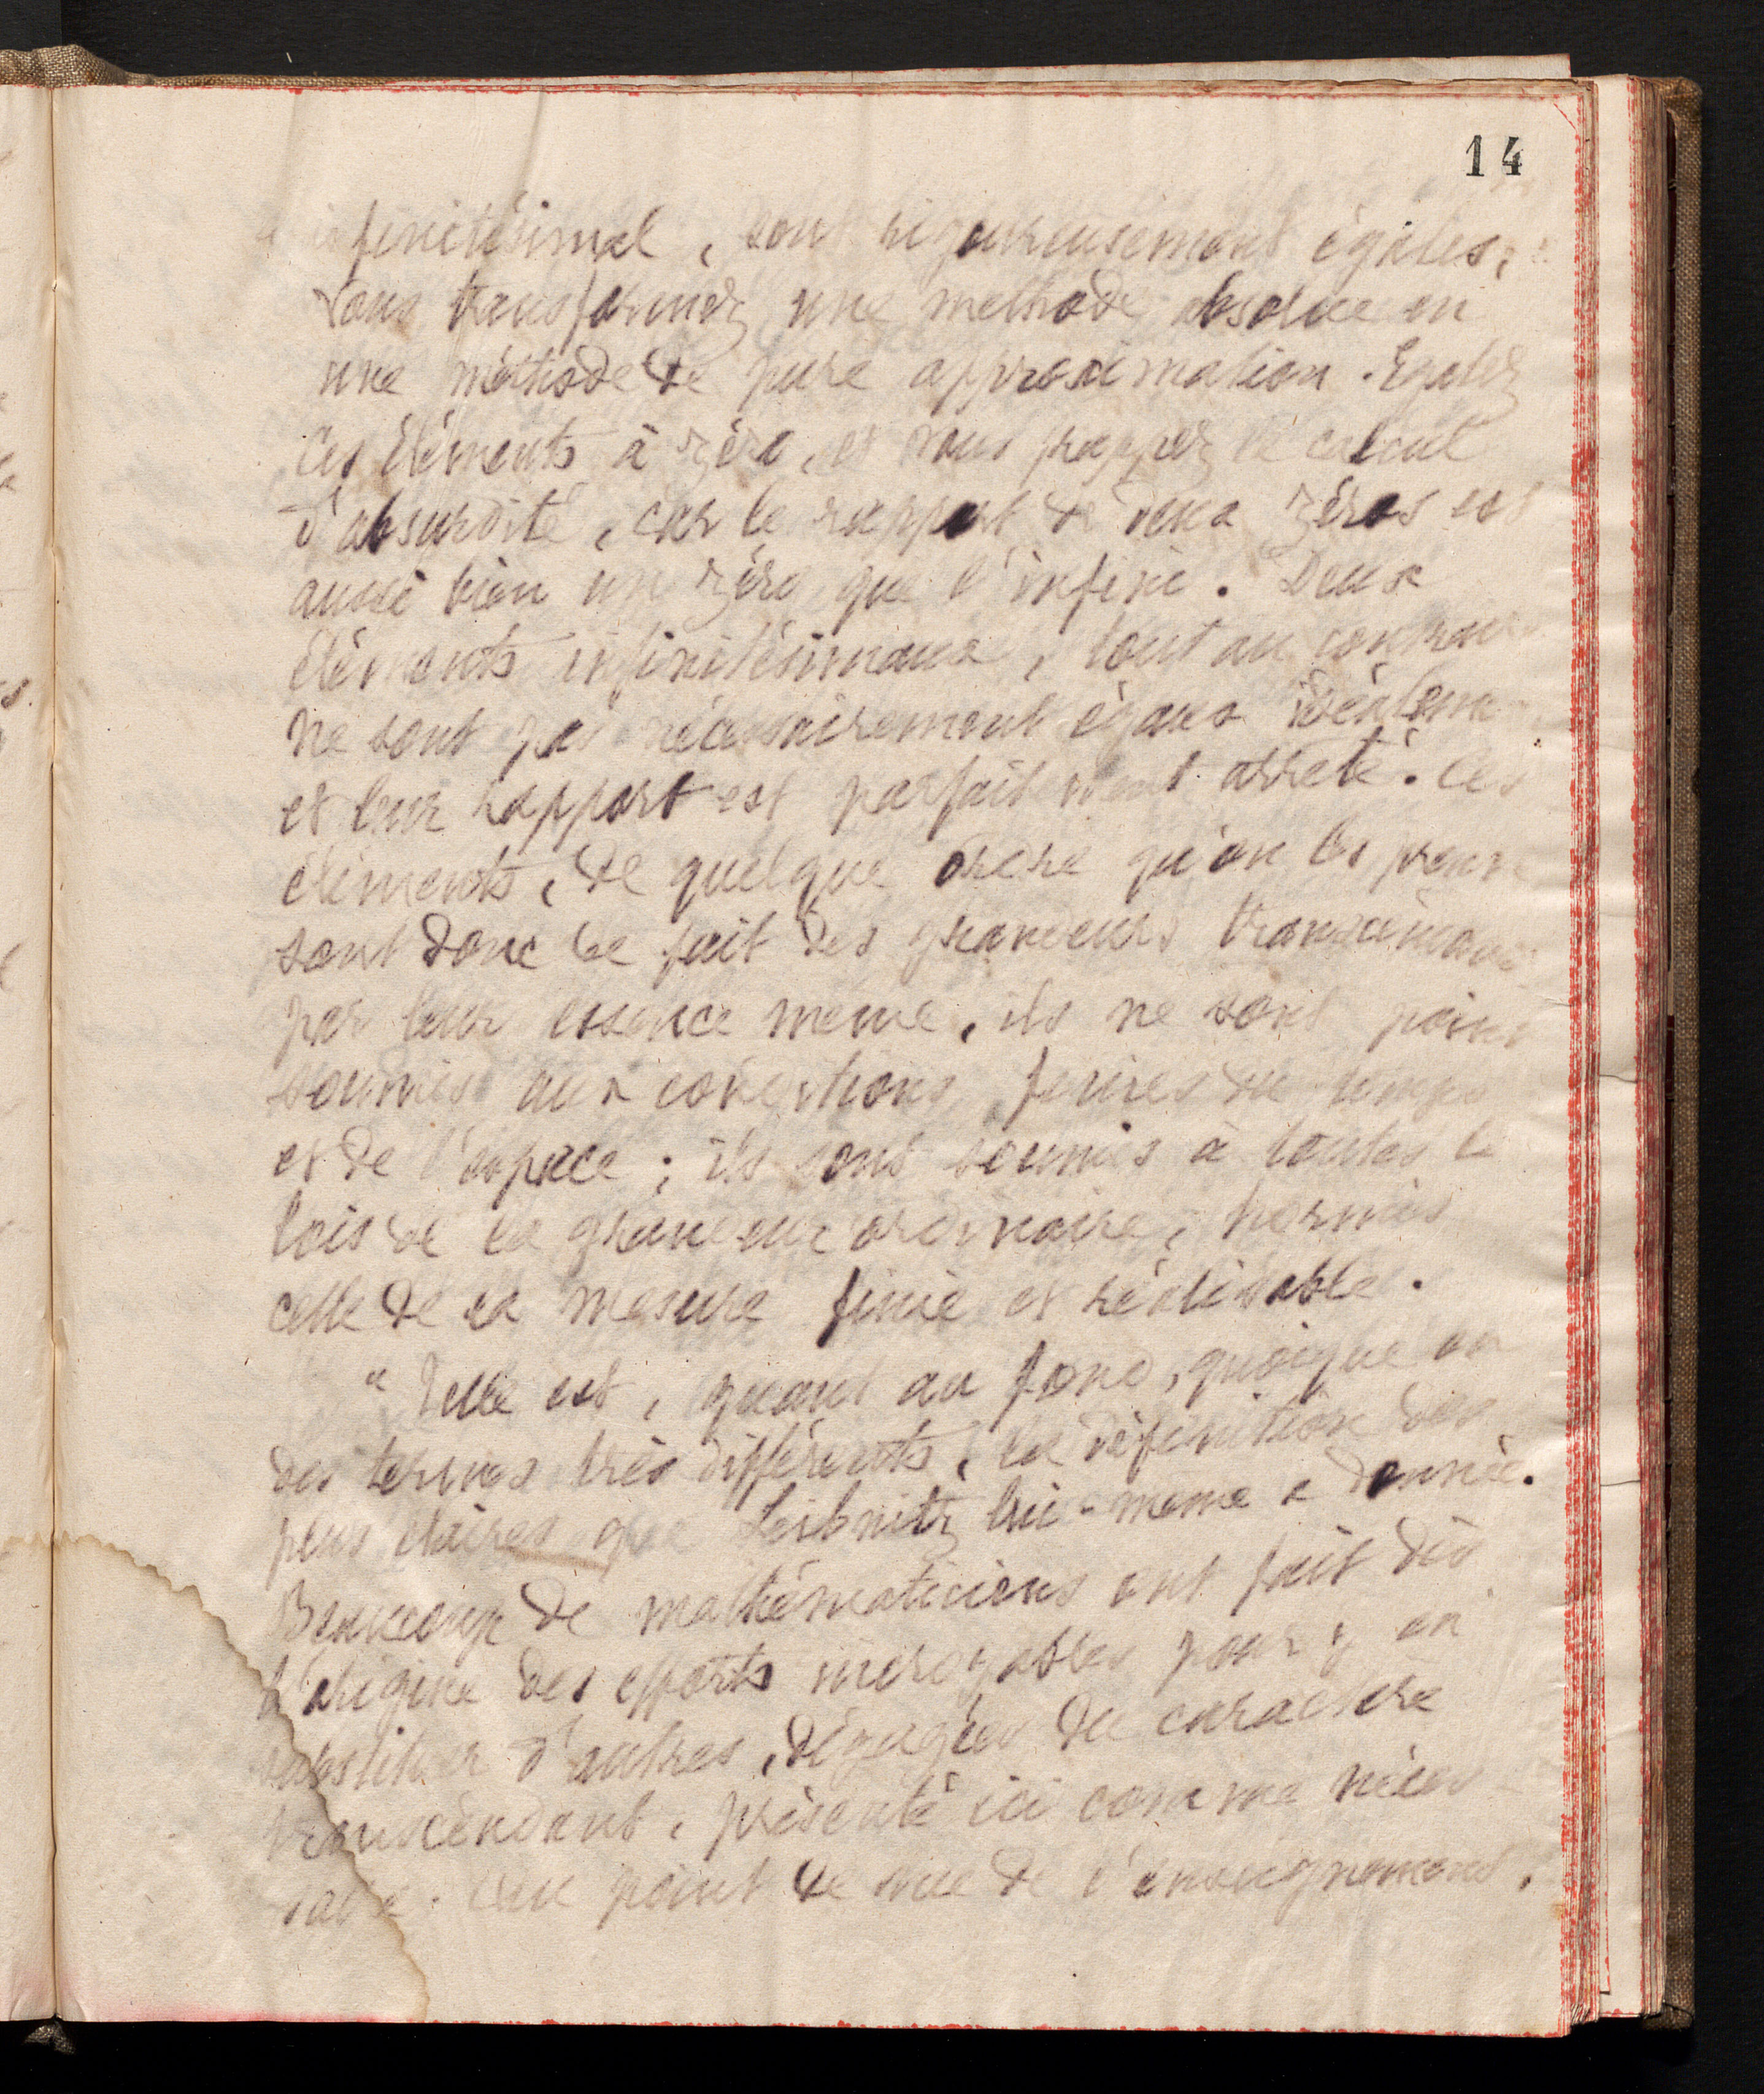 14
infinitésimal, sont rigoureusement égales,
vous transformez une méthode absolue en
une méthode de pure approximation. Egalez
ces éléments à zéro, et vous frappez le calcul
d'absurdité, car le rapport de deux zéros est
aussi bien un zéro que l'infini. Deux
éléments infinitésimaux, tout au contrai
ne sont pas nécessairement égaux idéaleme
et leur rapport est parfaitement arrêté. Ces
éléments, de quelque ordre qu'on les prenne
sont donc de fait des grandeurs
par leur essence même, ils ne sont point
soumis aux conditions finies du temps
et de l'espace ; ils sont soumis à toutes le
lois de la grandeur ordinaire, hormis
celle de la mesure finie et réalisable.
" Telle est, quant au fond, quoique en
des termes très différents, la définition des
plus claires que Leibnitz lui-même a donnée.
Beaucoup de mathématiciens ont fait dès
l'origine des efforts incroyables pour y en
substituer d'autres, dégagées du caractère
transcendant, présenté ici comme néces
saire. Au point de vue de l'enseignement,